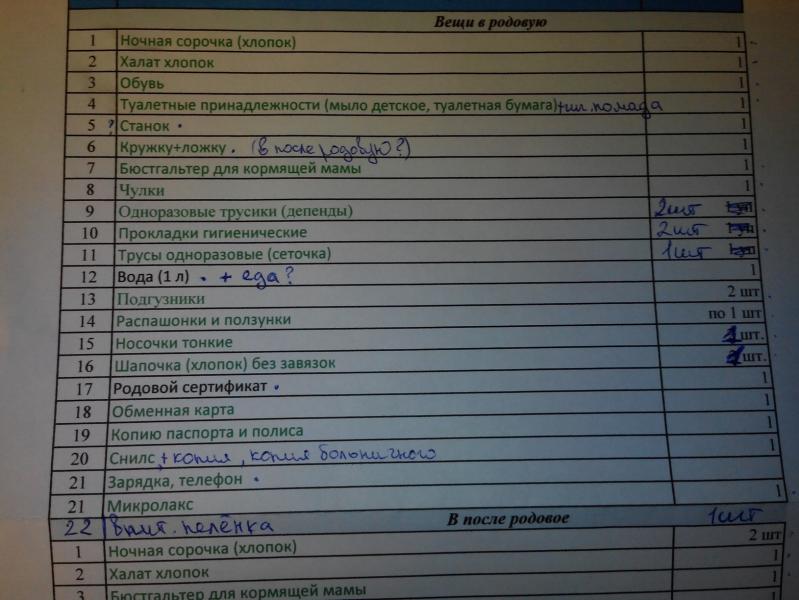 Вещи в родовую
1 Ночная сорочка (хлопок) 1
2 Халат хлопок 1
3 Обувь 1
4 Туалетные принадлежности (мыло детское, туалетная бумага)+гиг. помада 1
5 ? Станок 1
6 Кружку+ложку (в после родовую?) 1
7 Бюстгальтер для кормящей мамы 1
8 Чулки 1
9 Одноразовые трусики (депенды) 2шт
10 Прокладки гигиенические 2шт
11 Трусы одноразовые (сеточка) 1шт
12 Вода (1 л) + еда? 1
13 Подгузники 2 шт
14 Распашонки и ползунки по 1 шт
15 Носочки тонкие шт.
16 Шапочка (хлопок) без завязок шт.
17 Родовой сертификат 1
18 Обменная карта 1
19 Копию паспорта и полиса 1
20 Снилс + копия, копия больничного 1
21 Зарядка, телефон
21 Микролакс 1
22 впит. пелёнка 1шт
В после родовое
1 Ночная сорочка (хлопок) 2 шт
2 Халат хлопок 1
3 Бюстгальтер для кормящей мамы 1